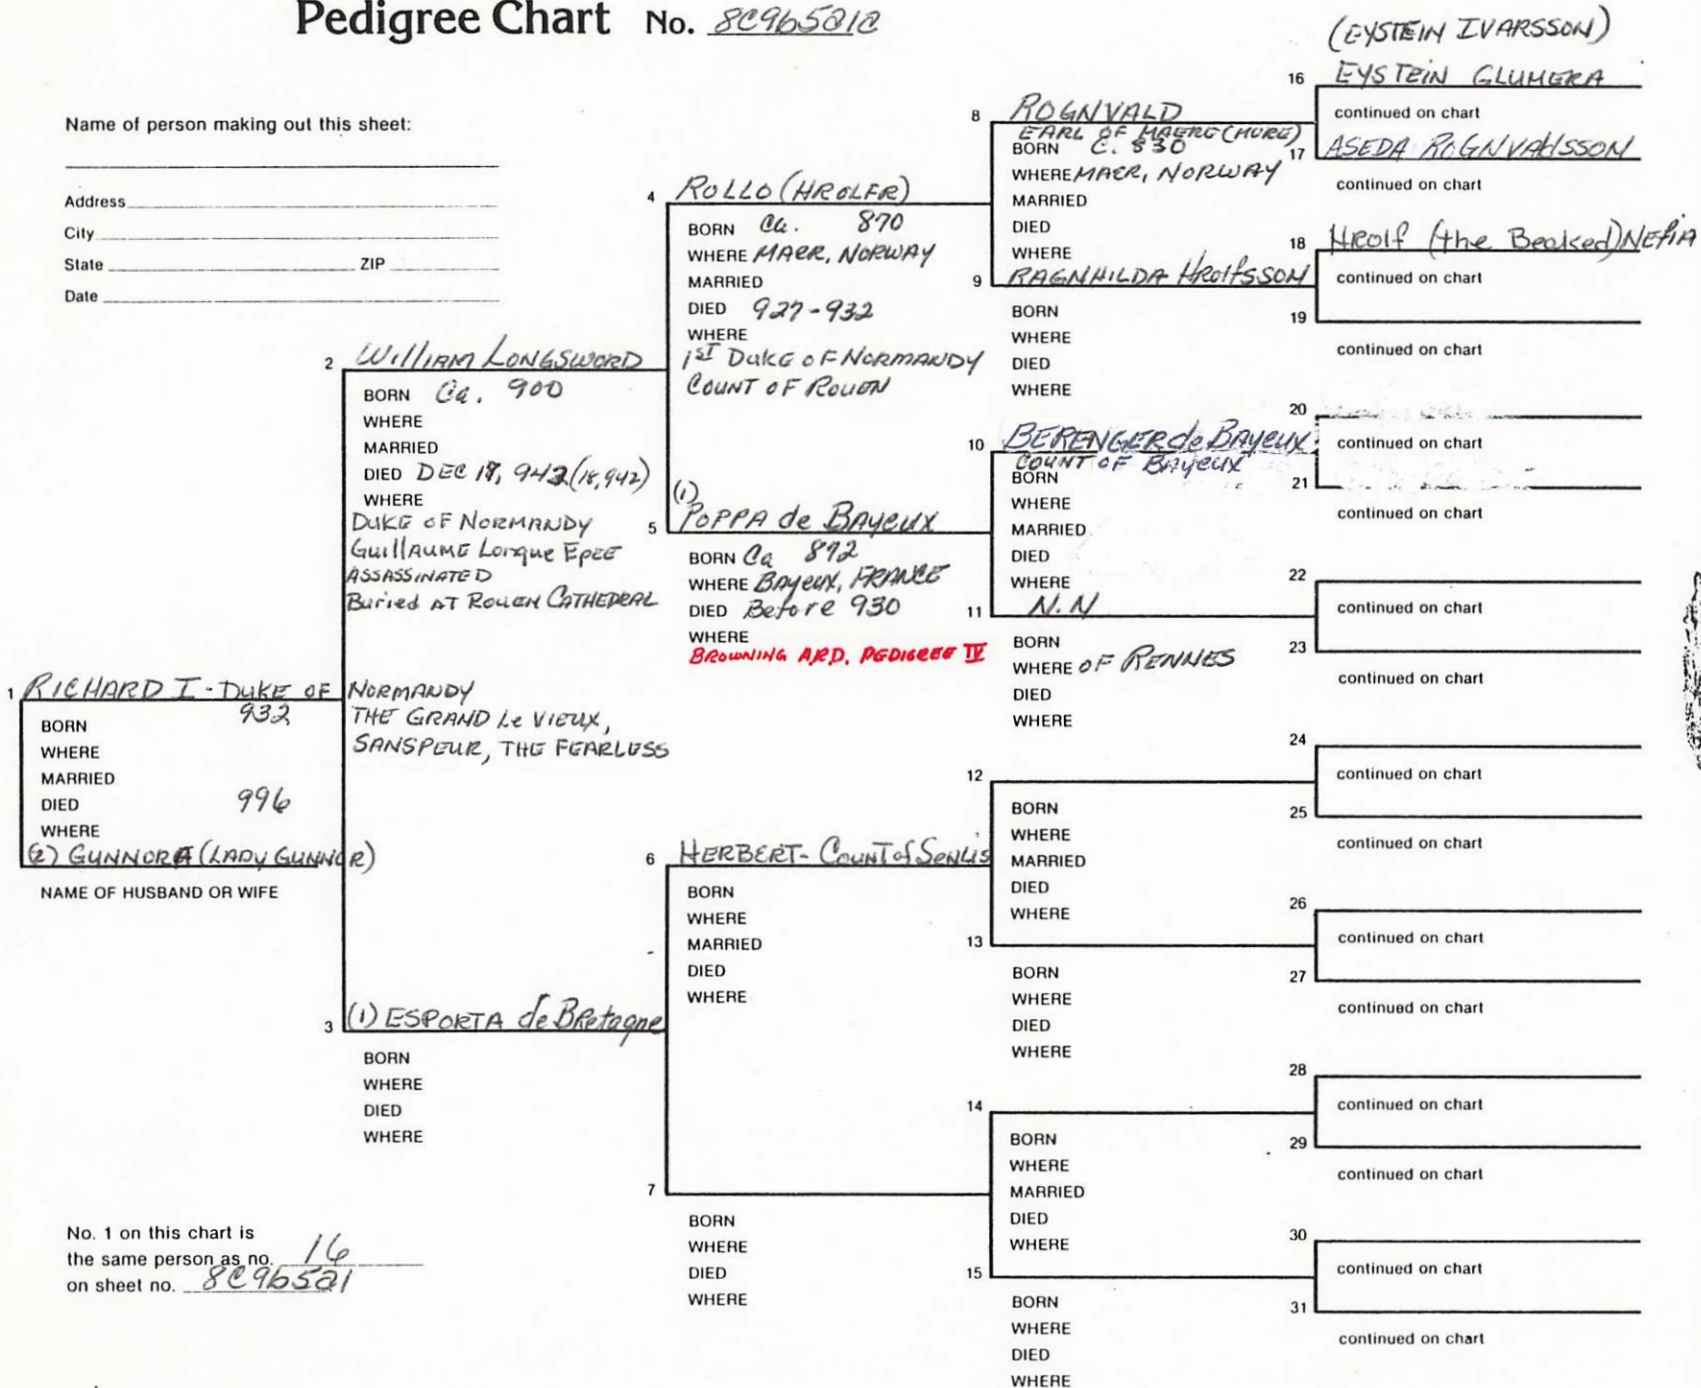 Pedigree Chart No. 8C9b5a1a
Name of person making out this sheet:
Address
City
State ZIP
Date
1 RICHARD I - DUKE OF NORMANDY
THE GRAND Le VIEUX,
SANSPEUR, THE FEARLESS
BORN 932
WHERE
MARRIED
DIED 996
WHERE
(2) GUNNORA (LADY GUNNOR)
NAME OF HUSBAND OR WIFE
No. 1 on this chart is
the same person as no. 16
on sheet no. 8C9b5a1
2 William LONGSWORD
BORN Ca. 900
WHERE
MARRIED
DIED DEC 17, 942 (18, 942)
WHERE
DUKE OF NORMANDY
GuillAUME Longue EPEE
ASSASSINATED
Buried AT ROUEN CATHEDRAL
3 (1) ESPORTA de BRetagne
BORN
WHERE
DIED
WHERE
4 ROLLO (HROLFR)
BORN Ca. 870
WHERE MAER, NORWAY
MARRIED
DIED 927-932
WHERE
1ST DUKE OF NORMANDY
COUNT OF ROUEN
(1)
5 POPPA de BAYeUX
BORN Ca 872
WHERE BAYeUX, FRANCE
DIED Before 930
WHERE
BROWNING ARD. PEDIGREE IV
6 HERBERT - COUNT of SENLIS
BORN
WHERE
MARRIED
DIED
WHERE
7
BORN
WHERE
DIED
WHERE
8 ROGNVALD
EARL OF MAERE (MORE)
BORN C. 830
WHERE MAER, NORWAY
MARRIED
DIED
WHERE
9 RAGNHILDA HRolfsSON
BORN
WHERE
DIED
WHERE
10 BERENGER de BAYeUX
COUNT OF BAYeUX
BORN
WHERE
MARRIED
DIED
WHERE
11 N.N
BORN
WHERE OF RENNES
DIED
WHERE
12
BORN
WHERE
MARRIED
DIED
WHERE
13
BORN
WHERE
DIED
WHERE
14
BORN
WHERE
MARRIED
DIED
WHERE
15
BORN
WHERE
DIED
WHERE
(EYSTEIN IVARSSON)
16 EYSTEIN GLUMERA
continued on chart
17 ASEDA ROGNVALDSSON
continued on chart
18 HRolf (the Beaked) NEFIA
continued on chart
19
continued on chart
20
continued on chart
21
continued on chart
22
continued on chart
23
continued on chart
24
continued on chart
25
continued on chart
26
continued on chart
27
continued on chart
28
continued on chart
29
continued on chart
30
continued on chart
31
continued on chart